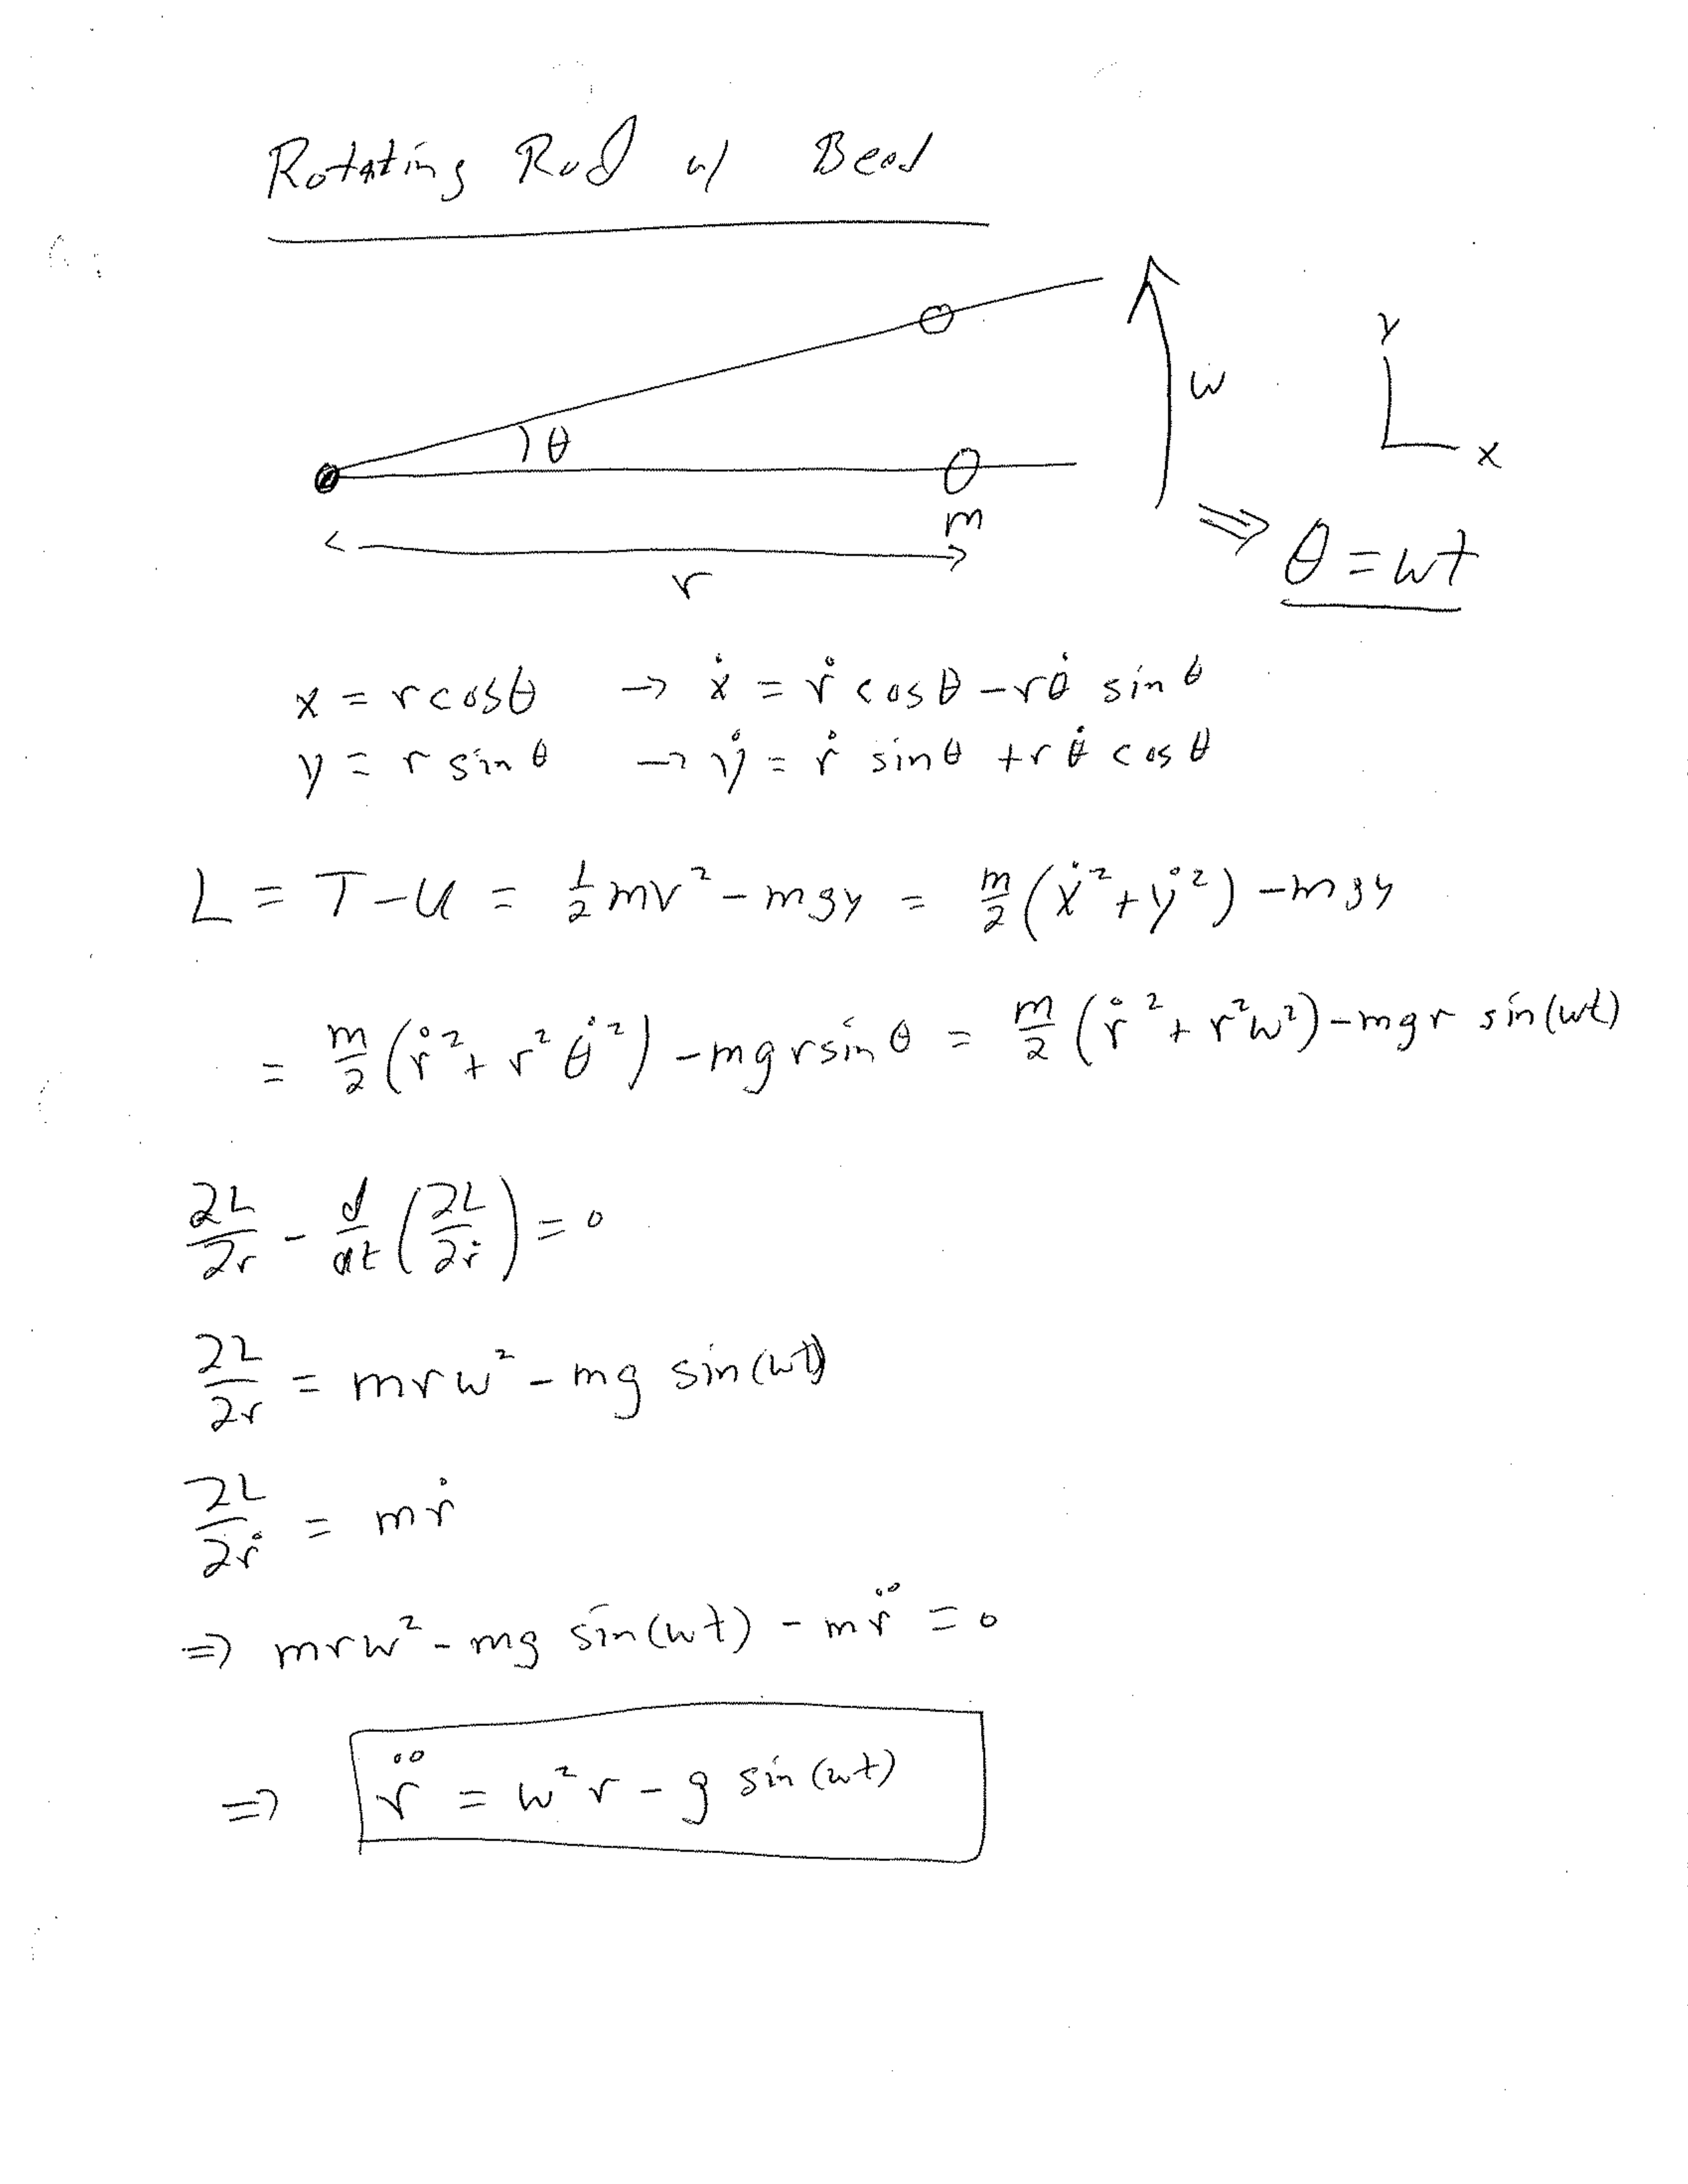 Rotating Rod w/ Bead
θ
ω
y
x
m
r
⇒ θ = ωt
x = r cosθ → ẋ = ṙ cosθ - rθ̇ sinθ
y = r sinθ → ẏ = ṙ sinθ + rθ̇ cosθ
L = T - U = ½ mv² - mgy = m/2 (ẋ² + ẏ²) - mgy
= m/2 (ṙ² + r² θ̇²) - mgr sinθ = m/2 (ṙ² + r²ω²) - mgr sin(ωt)
∂L/∂r - d/dt (∂L/∂ṙ) = 0
∂L/∂r = mrω² - mg sin(ωt)
∂L/∂ṙ = mṙ
⇒ mrω² - mg sin(ωt) - mr̈ = 0
⇒ r̈ = ω²r - g sin(ωt)